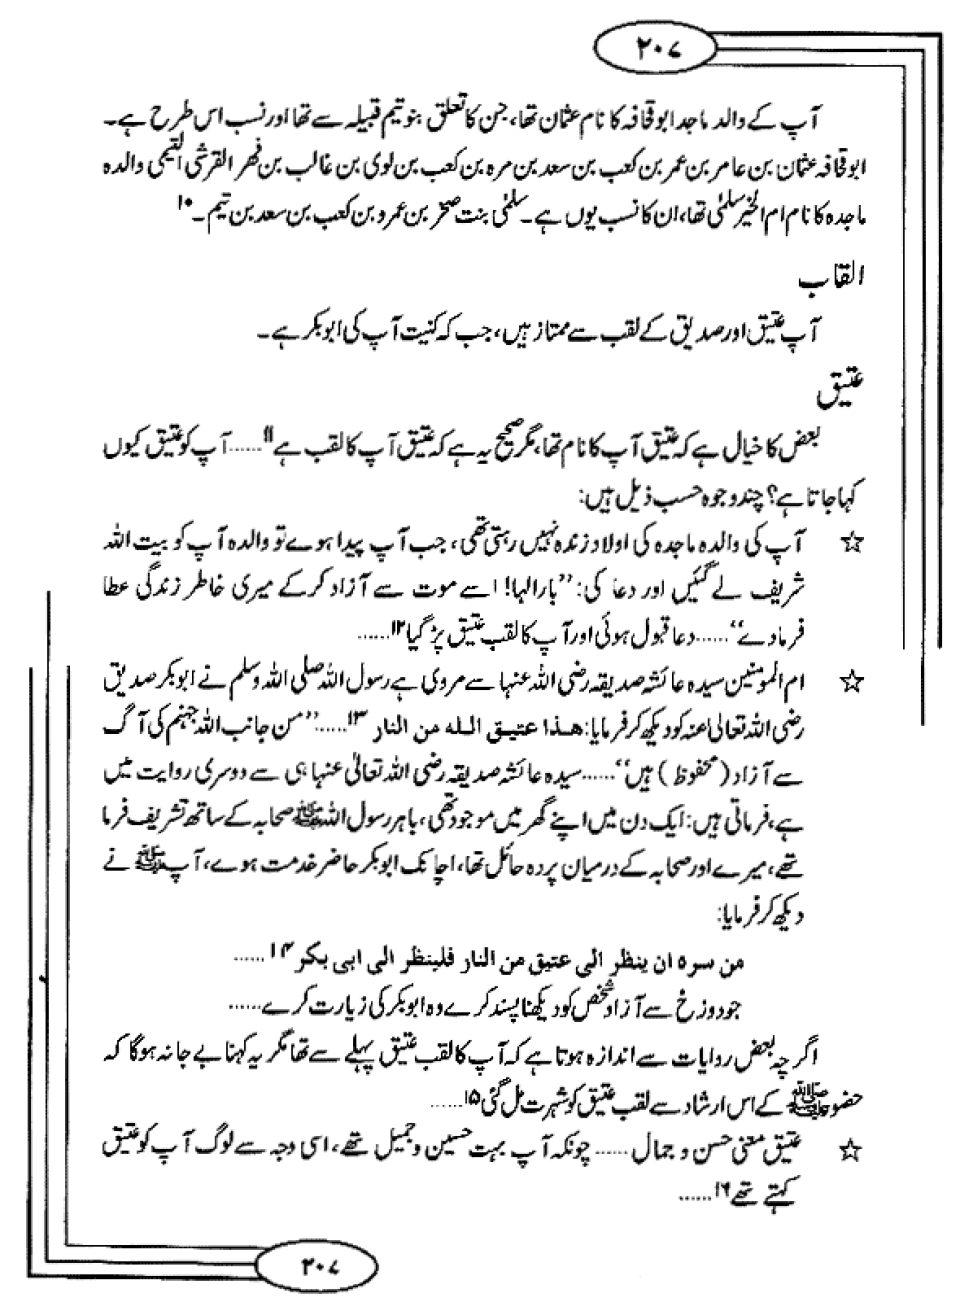 ۲۰۷
آپ کے والد ماجد ابو قحافہ کا نام عثمان تھا، جن کا تعلق بنو تیم قبیلہ سے تھا اور نسب اس طرح ہے۔
ابو قحافہ عثمان بن عامر بن عمر بن کعب بن سعد بن مرہ بن کعب بن لوی بن غالب بن فھر القرشی التیمی والدہ
ماجدہ کا نام ام الخیر سلمٰی تھا، ان کا نسب یوں ہے۔ سلمٰی بنت صخر بن عمرو بن کعب بن سعد بن تیم۔۱۰
القاب
آپ عتیق اور صدیق کے لقب سے ممتاز ہیں، جب کہ کنیت آپ کی ابوبکر ہے۔
عتیق
بعض کا خیال ہے کہ عتیق آپ کا نام تھا، مگر صحیح یہ ہے کہ عتیق آپ کا لقب ہے۱۱...... آپ کو عتیق کیوں
کہا جاتا ہے؟ چند وجوہ حسب ذیل ہیں:
☆ آپ کی والدہ ماجدہ کی اولاد زندہ نہیں رہتی تھی، جب آپ پیدا ہوے تو والدہ آپ کو بیت اللہ
شریف لے گئیں اور دعا کی: ’’بارالہا! اسے موت سے آزاد کر کے میری خاطر زندگی عطا
فرمادے‘‘...... دعا قبول ہوئی اور آپ کا لقب عتیق پڑ گیا۱۲......
☆ ام المومنین سیدہ عائشہ صدیقہ رضی اللہ عنہا سے مروی ہے رسول اللہ صلی اللہ وسلم نے ابوبکر صدیق
رضی اللہ تعالٰی عنہ کو دیکھ کر فرمایا: هذا عتيق الله من النار ۱۳...... ’’من جانب اللہ جہنم کی آگ
سے آزاد (محفوظ) ہیں‘‘...... سیدہ عائشہ صدیقہ رضی اللہ تعالٰی عنہا ہی سے دوسری روایت میں
ہے، فرماتی ہیں: ایک دن میں اپنے گھر میں موجود تھی، باہر رسول اللہ ﷺ صحابہ کے ساتھ تشریف فرما
تھے، میرے اور صحابہ کے درمیان پردہ حائل تھا، اچانک ابوبکر حاضر خدمت ہوے، آپ ﷺ نے
دیکھ کر فرمایا:
من سره ان ينظر الى عتيق من النار فلينظر الى ابى بكر ۱۴......
جو دوزخ سے آزاد شخص کو دیکھنا پسند کرے وہ ابوبکر کی زیارت کرے......
اگرچہ بعض روایات سے اندازہ ہوتا ہے کہ آپ کا لقب عتیق پہلے سے تھا مگر یہ کہنا بے جا نہ ہوگا کہ
حضور ﷺ کے اس ارشاد سے لقب عتیق کو شہرت مل گئی۱۵......
☆ عتیق معنی حسن و جمال...... چونکہ آپ بہت حسین و جمیل تھے، اسی وجہ سے لوگ آپ کو عتیق
کہتے تھے۱۶......
۲۰۷